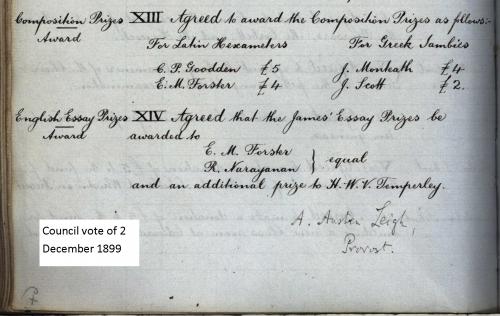 Composition Prizes XIII Agreed to award the Composition Prizes as follows:-
Award For Latin Hexameters For Greek Iambics
C. P. Goodden £5 J. Monteath £4
E. M. Forster £4 J. Scott £2.
English Essay Prizes XIV Agreed that the James' Essay Prizes be
Award awarded to
E. M. Forster
R. Narayanan } equal
and an additional prize to H. W. V. Temperley.
A. Austen Leigh,
Provost.
Council vote of 2
December 1899